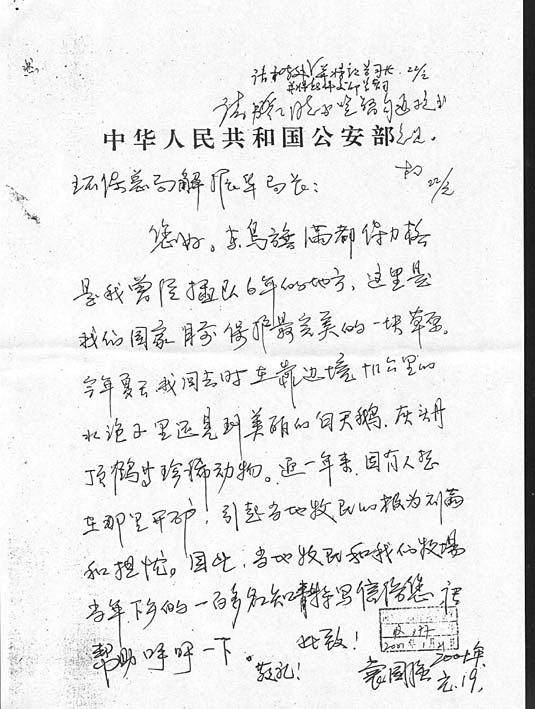 22/2
中华人民共和国公安部
22/2
环保总局解振华局长：
您好。东乌旗满都宝力格
是我曾经插队6年的地方，这里是
我们国家目前保护最完美的一块草原。
今年夏天我回去时在靠边境十几公里的
水泡子里还见到美丽的白天鹅、灰头丹
顶鹤等珍稀动物。近一年来，因有人要
在那里开矿，引起当地牧民的极为不满
和担忧。因此，当地牧民和我们牧场
当年下乡的一百多名知青特写信给您，请
帮助呼吁一下。
此致！
敬礼！
袁国强 2001年
元.19.